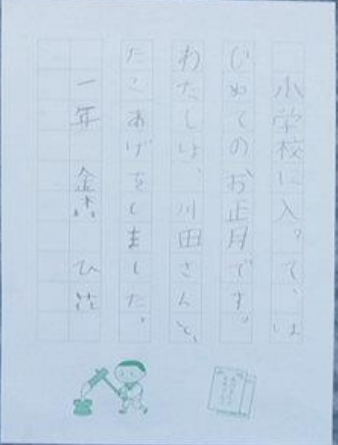 小学校に入って、は
じめてのお正月です。
わたしは、川田さんと、
たこあげをしました。
一年